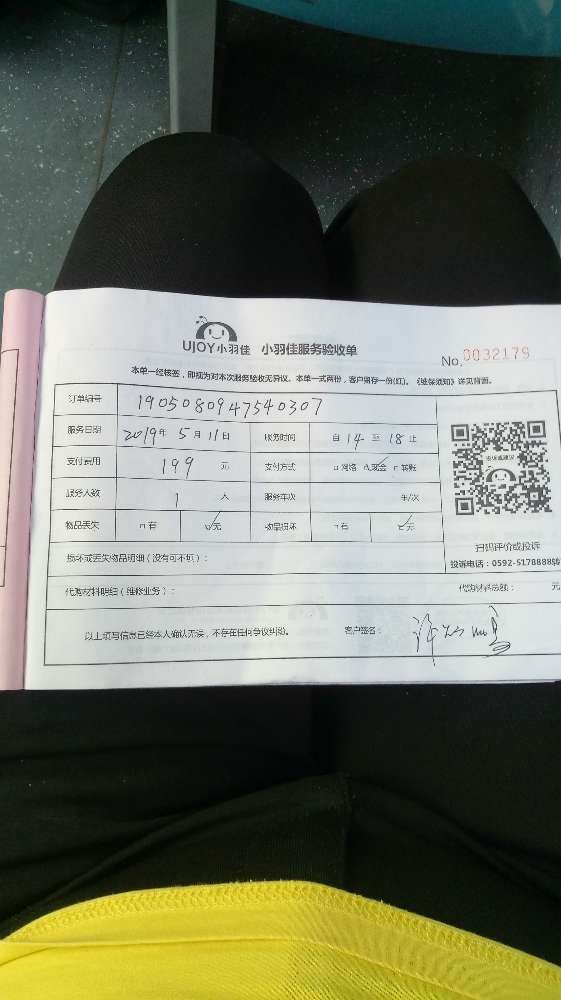 UJOY小羽佳 小羽佳服务验收单
No.0032179
本单一经核签，即视为对本次服务验收无异议。本单一式两份，客户留存一份(红)。《维保须知》详见背面。
订单编号 1905080947540307
服务日期 2019年5月11日 服务时间 自14至18止
支付费用 199元 支付方式 □网络 ☑现金 □转账
服务人数 1人 服务车次 车/次
物品丢失 □有 ☑无 物品损坏 □有 ☑无
投诉或建议
扫码评价或投诉
投诉电话：0592-5178888转
损坏或丢失物品明细（没有可不填）：
代购材料明细（维修业务）： 代购材料总额： 元
以上填写信息已经本人确认无误，不存在任何争议纠纷。 客户签名：